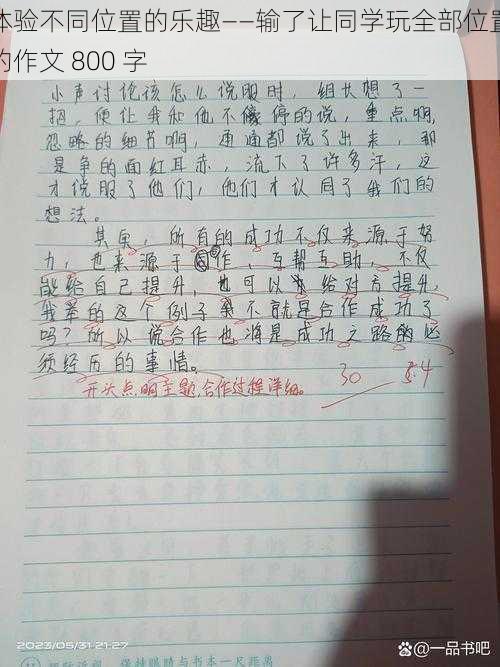 体验不同位置的乐趣——输了让同学玩全部位置
的作文 800 字
小声讨论该怎么说服时，组长想了一
招，便让我和他不停的说，重点啊，
忽略的细节啊，通通都说了出来，那
是争的面红耳赤，流下了许多汗，这
才说服了他们，他们才认同了我们的
想法。
其实，所有的成功不仅来源于努
力，也来源于合作，互帮互助，不仅
能给自己提升，也可以给对方提升，
我举的这个例子不就是合作成功了
吗？所以说合作也将是成功之路的必
须经历的事情。
开头点明主题，合作过程详细。
30 5.4
2023/05/31 21:27
保持眼睛与书本一尺距离
@一品书吧